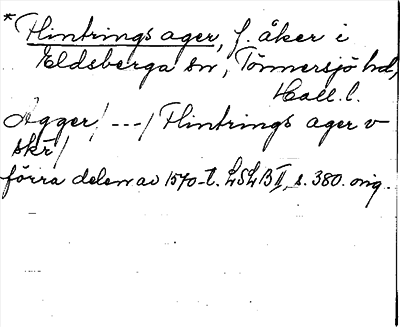 * Flintrings ager, f. åker i
Eldsberga sn, Tönnersjö hd,
Hall. l.
Agger/ ---/ Flintrings ager v
skr/
förra delen av 1570-t. LSLB II, s. 380. orig.